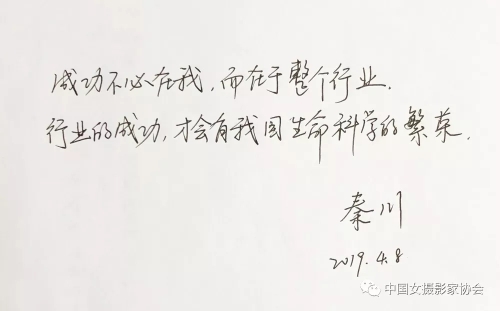 成功不必在我,而在于整个行业.
行业的成功,才会有我国生命科学的繁荣.
秦川
2019.4.8
中国女摄影家协会